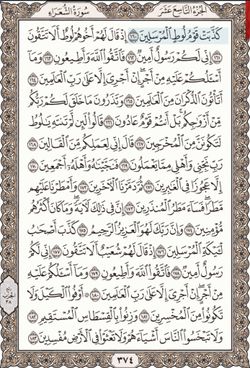 الجزء التاسع عشر سورة الشعراء
كَذَّبَتْ قَوْمُ لُوطٍ ٱلْمُرْسَلِينَ ١٦٠ إِذْ قَالَ لَهُمْ أَخُوهُمْ لُوطٌ أَلَا تَتَّقُونَ
١٦١ إِنِّى لَكُمْ رَسُولٌ أَمِينٌ ١٦٢ فَٱتَّقُوا۟ ٱللَّهَ وَأَطِيعُونِ ١٦٣ وَمَآ
أَسْـَٔلُكُمْ عَلَيْهِ مِنْ أَجْرٍ إِنْ أَجْرِىَ إِلَّا عَلَىٰ رَبِّ ٱلْعَـٰلَمِينَ ١٦٤
أَتَأْتُونَ ٱلذُّكْرَانَ مِنَ ٱلْعَـٰلَمِينَ ١٦٥ وَتَذَرُونَ مَا خَلَقَ لَكُمْ رَبُّكُم
مِّنْ أَزْوَٰجِكُم بَلْ أَنتُمْ قَوْمٌ عَادُونَ ١٦٦ قَالُوا۟ لَئِن لَّمْ تَنتَهِ يَـٰلُوطُ
لَتَكُونَنَّ مِنَ ٱلْمُخْرَجِينَ ١٦٧ قَالَ إِنِّى لِعَمَلِكُم مِّنَ ٱلْقَالِينَ ١٦٨
رَبِّ نَجِّنِى وَأَهْلِى مِمَّا يَعْمَلُونَ ١٦٩ فَنَجَّيْنَـٰهُ وَأَهْلَهُۥٓ أَجْمَعِينَ ١٧٠
إِلَّا عَجُوزًا فِى ٱلْغَـٰبِرِينَ ١٧١ ثُمَّ دَمَّرْنَا ٱلْـَٔاخَرِينَ ١٧٢ وَأَمْطَرْنَا عَلَيْهِم
مَّطَرًا فَسَآءَ مَطَرُ ٱلْمُنذَرِينَ ١٧٣ إِنَّ فِى ذَٰلِكَ لَـَٔايَةً وَمَا كَانَ أَكْثَرُهُم
مُّؤْمِنِينَ ١٧٤ وَإِنَّ رَبَّكَ لَهُوَ ٱلْعَزِيزُ ٱلرَّحِيمُ ١٧٥ كَذَّبَ أَصْحَـٰبُ
لْـَٔيْكَةِ ٱلْمُرْسَلِينَ ١٧٦ إِذْ قَالَ لَهُمْ شُعَيْبٌ أَلَا تَتَّقُونَ ١٧٧ إِنِّى لَكُمْ
رَسُولٌ أَمِينٌ ١٧٨ فَٱتَّقُوا۟ ٱللَّهَ وَأَطِيعُونِ ١٧٩ وَمَآ أَسْـَٔلُكُمْ عَلَيْهِ
مِنْ أَجْرٍ إِنْ أَجْرِىَ إِلَّا عَلَىٰ رَبِّ ٱلْعَـٰلَمِينَ ١٨٠ أَوْفُوا۟ ٱلْكَيْلَ وَلَا
تَكُونُوا۟ مِنَ ٱلْمُخْسِرِينَ ١٨١ وَزِنُوا۟ بِٱلْقِسْطَاسِ ٱلْمُسْتَقِيمِ ١٨٢
وَلَا تَبْخَسُوا۟ ٱلنَّاسَ أَشْيَآءَهُمْ وَلَا تَعْثَوْا۟ فِى ٱلْأَرْضِ مُفْسِدِينَ ١٨٣
٣٧٤